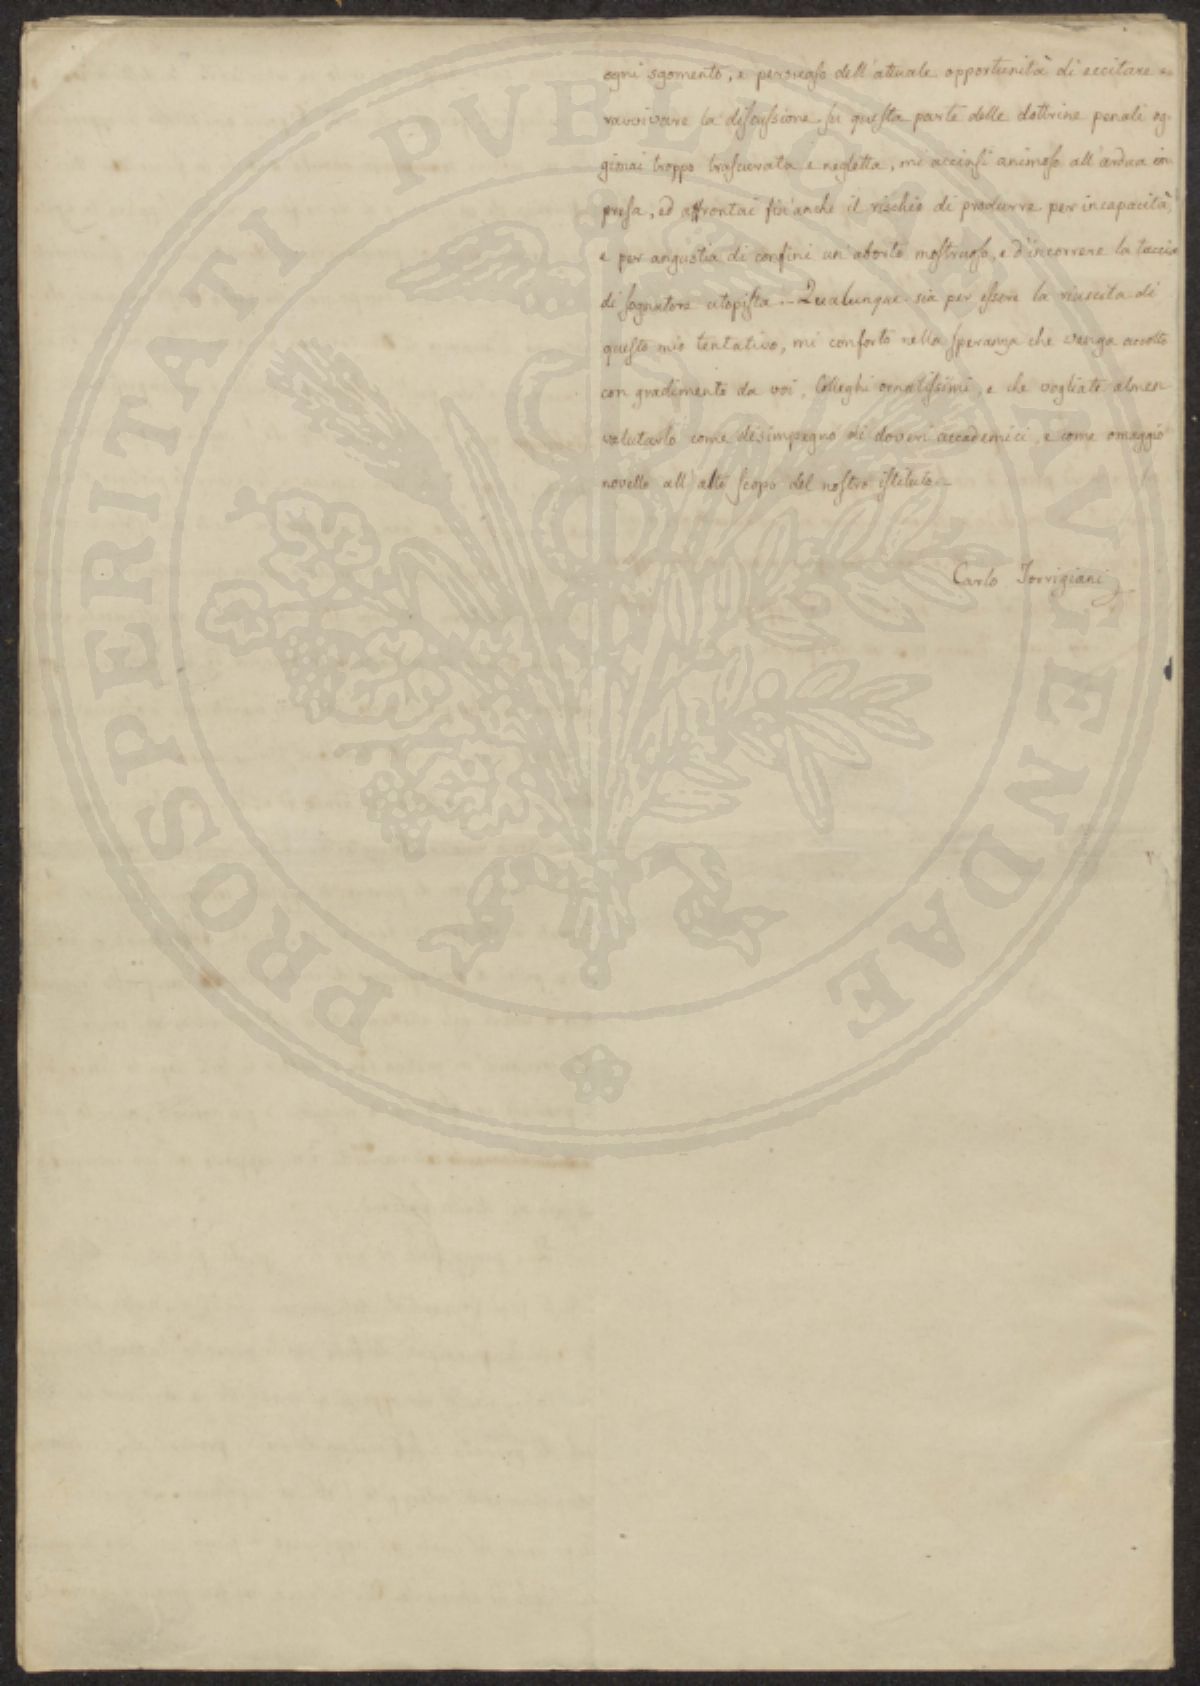 ogni sgomento, e persuaso dell'attuale opportunità di eccitare e
ravvivare la discussione su questa parte delle dottrine penali og-
gimai troppo trascurata e negletta, mi accinsi animoso all'ardua im
presa, ed affrontai fin'anche il rischio di produrre per incapacità,
e per angustia di confini un'aborto mostruoso, e d'incorrere la taccia
di sognatore utopista. — Qualunque sia per essere la riuscita di
questo mio tentativo, mi conforto nella speranza che venga accolto
con gradimento da voi, Colleghi ornatissimi, e che vogliate almen
valutarlo come disimpegno di doveri accademici, e come omaggio
novello all'alto scopo del nostro istituto. —
Carlo Torrigiani
PROSPERITATI PVBLICAE AVGENDAE